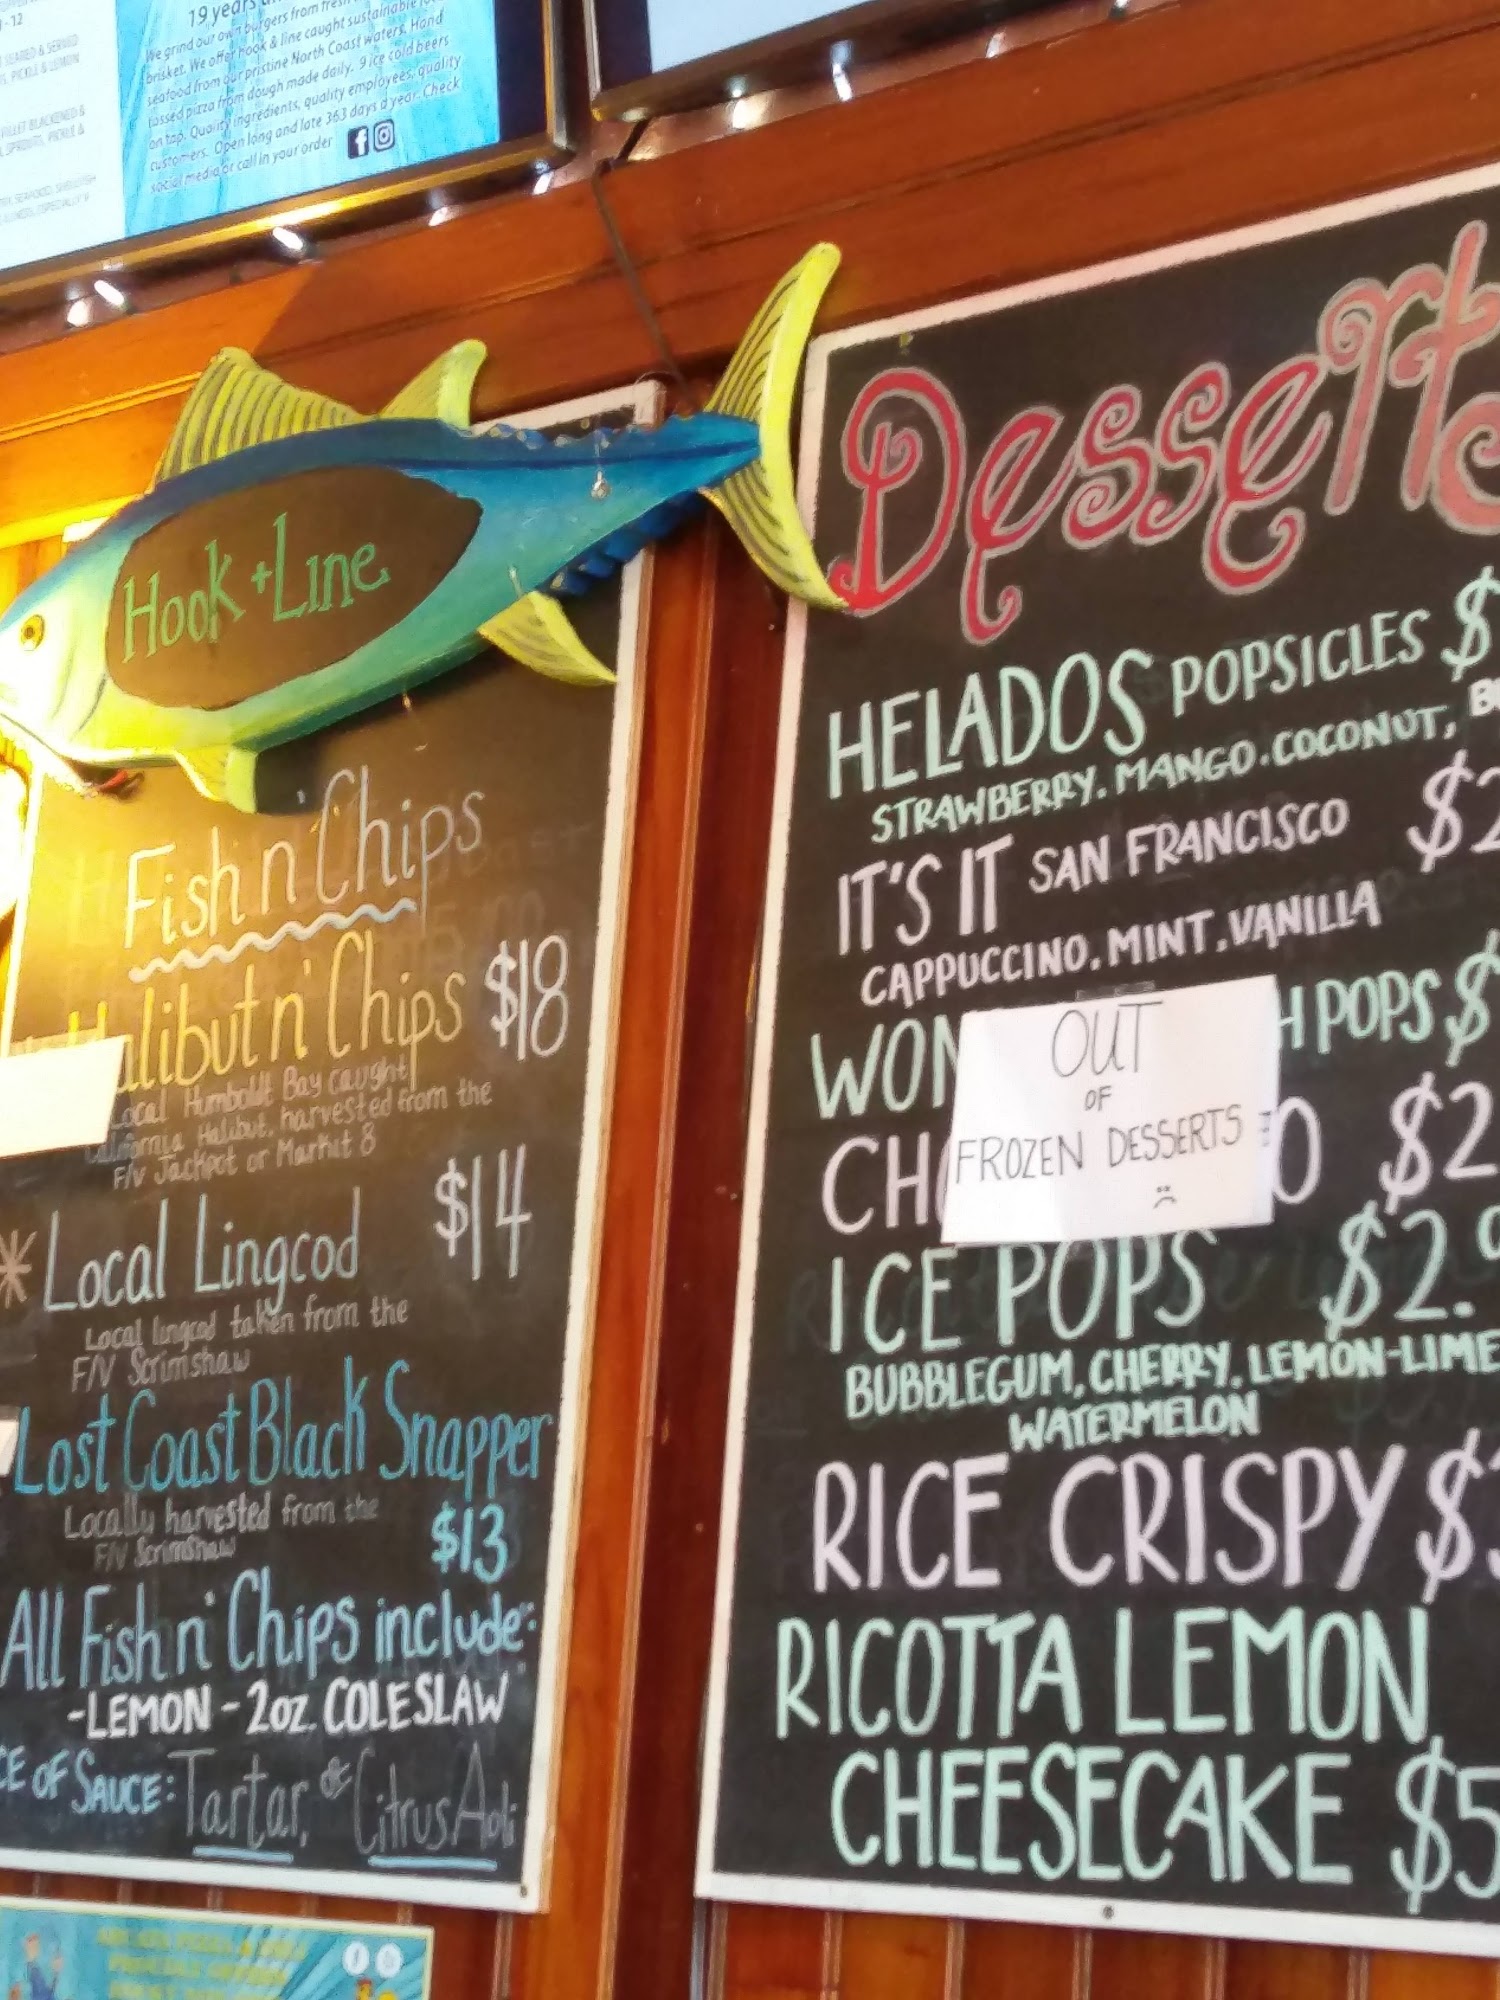 - 12
SEARED & SERVED
PICKLE & LEMON
FILLET BLACKENED &
SPROUTS, PICKLE &
19 years
We grind our own burgers from fresh
brisket. We offer hook & line caught sustainable
seafood from our pristine North Coast waters. Hand
tossed pizza from dough made daily. 9 ice cold beers
on tap. Quality ingredients, quality employees, quality
customers. Open long and late 363 days a year. Check
social media or call in your order
Hook + Line
Fish n' Chips
Halibut n' Chips $18
Local Humboldt Bay caught
California Halibut, harvested from the
F/V Jackpot or Market 8
Local Lingcod $14
Local lingcod taken from the
F/V Scrimshaw
Lost Coast Black Snapper
Locally harvested from the
F/V Scrimshaw $13
All Fish n' Chips include:
-LEMON - 2oz. COLESLAW
CE OF SAUCE: Tartar, & Citrus Aoli
Desserts
HELADOS POPSICLES $
STRAWBERRY. MANGO. COCONUT,
IT'S IT SAN FRANCISCO $2
CAPPUCCINO. MINT. VANILLA
WON H POPS $
CH O $2
OUT
OF
FROZEN DESSERTS
ICE POPS $2.9
BUBBLEGUM, CHERRY, LEMON-LIME
WATERMELON
RICE CRISPY $
RICOTTA LEMON
CHEESECAKE $5